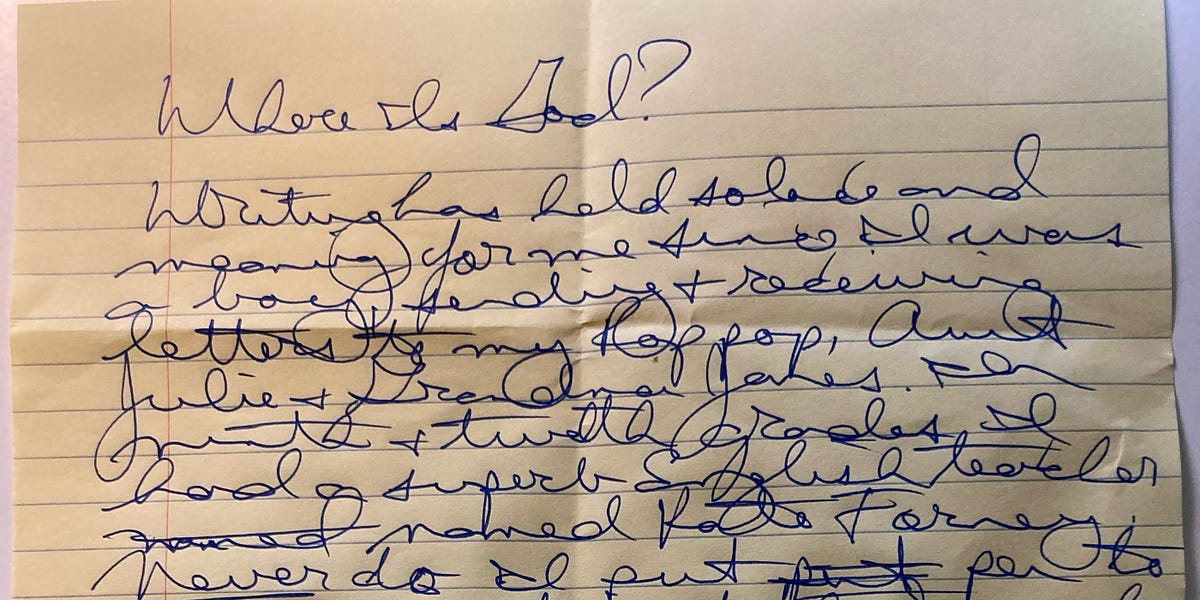 Where Is God?
Writing has held solace and
meaning for me since I was
a boy, sending + receiving
letters to my Pop pop, Aunt
Julie + Grandma Jakes. In
ninth + twelfth grades, I
had a superb English teacher
named named Kate Forney.
Never do I put put pen to